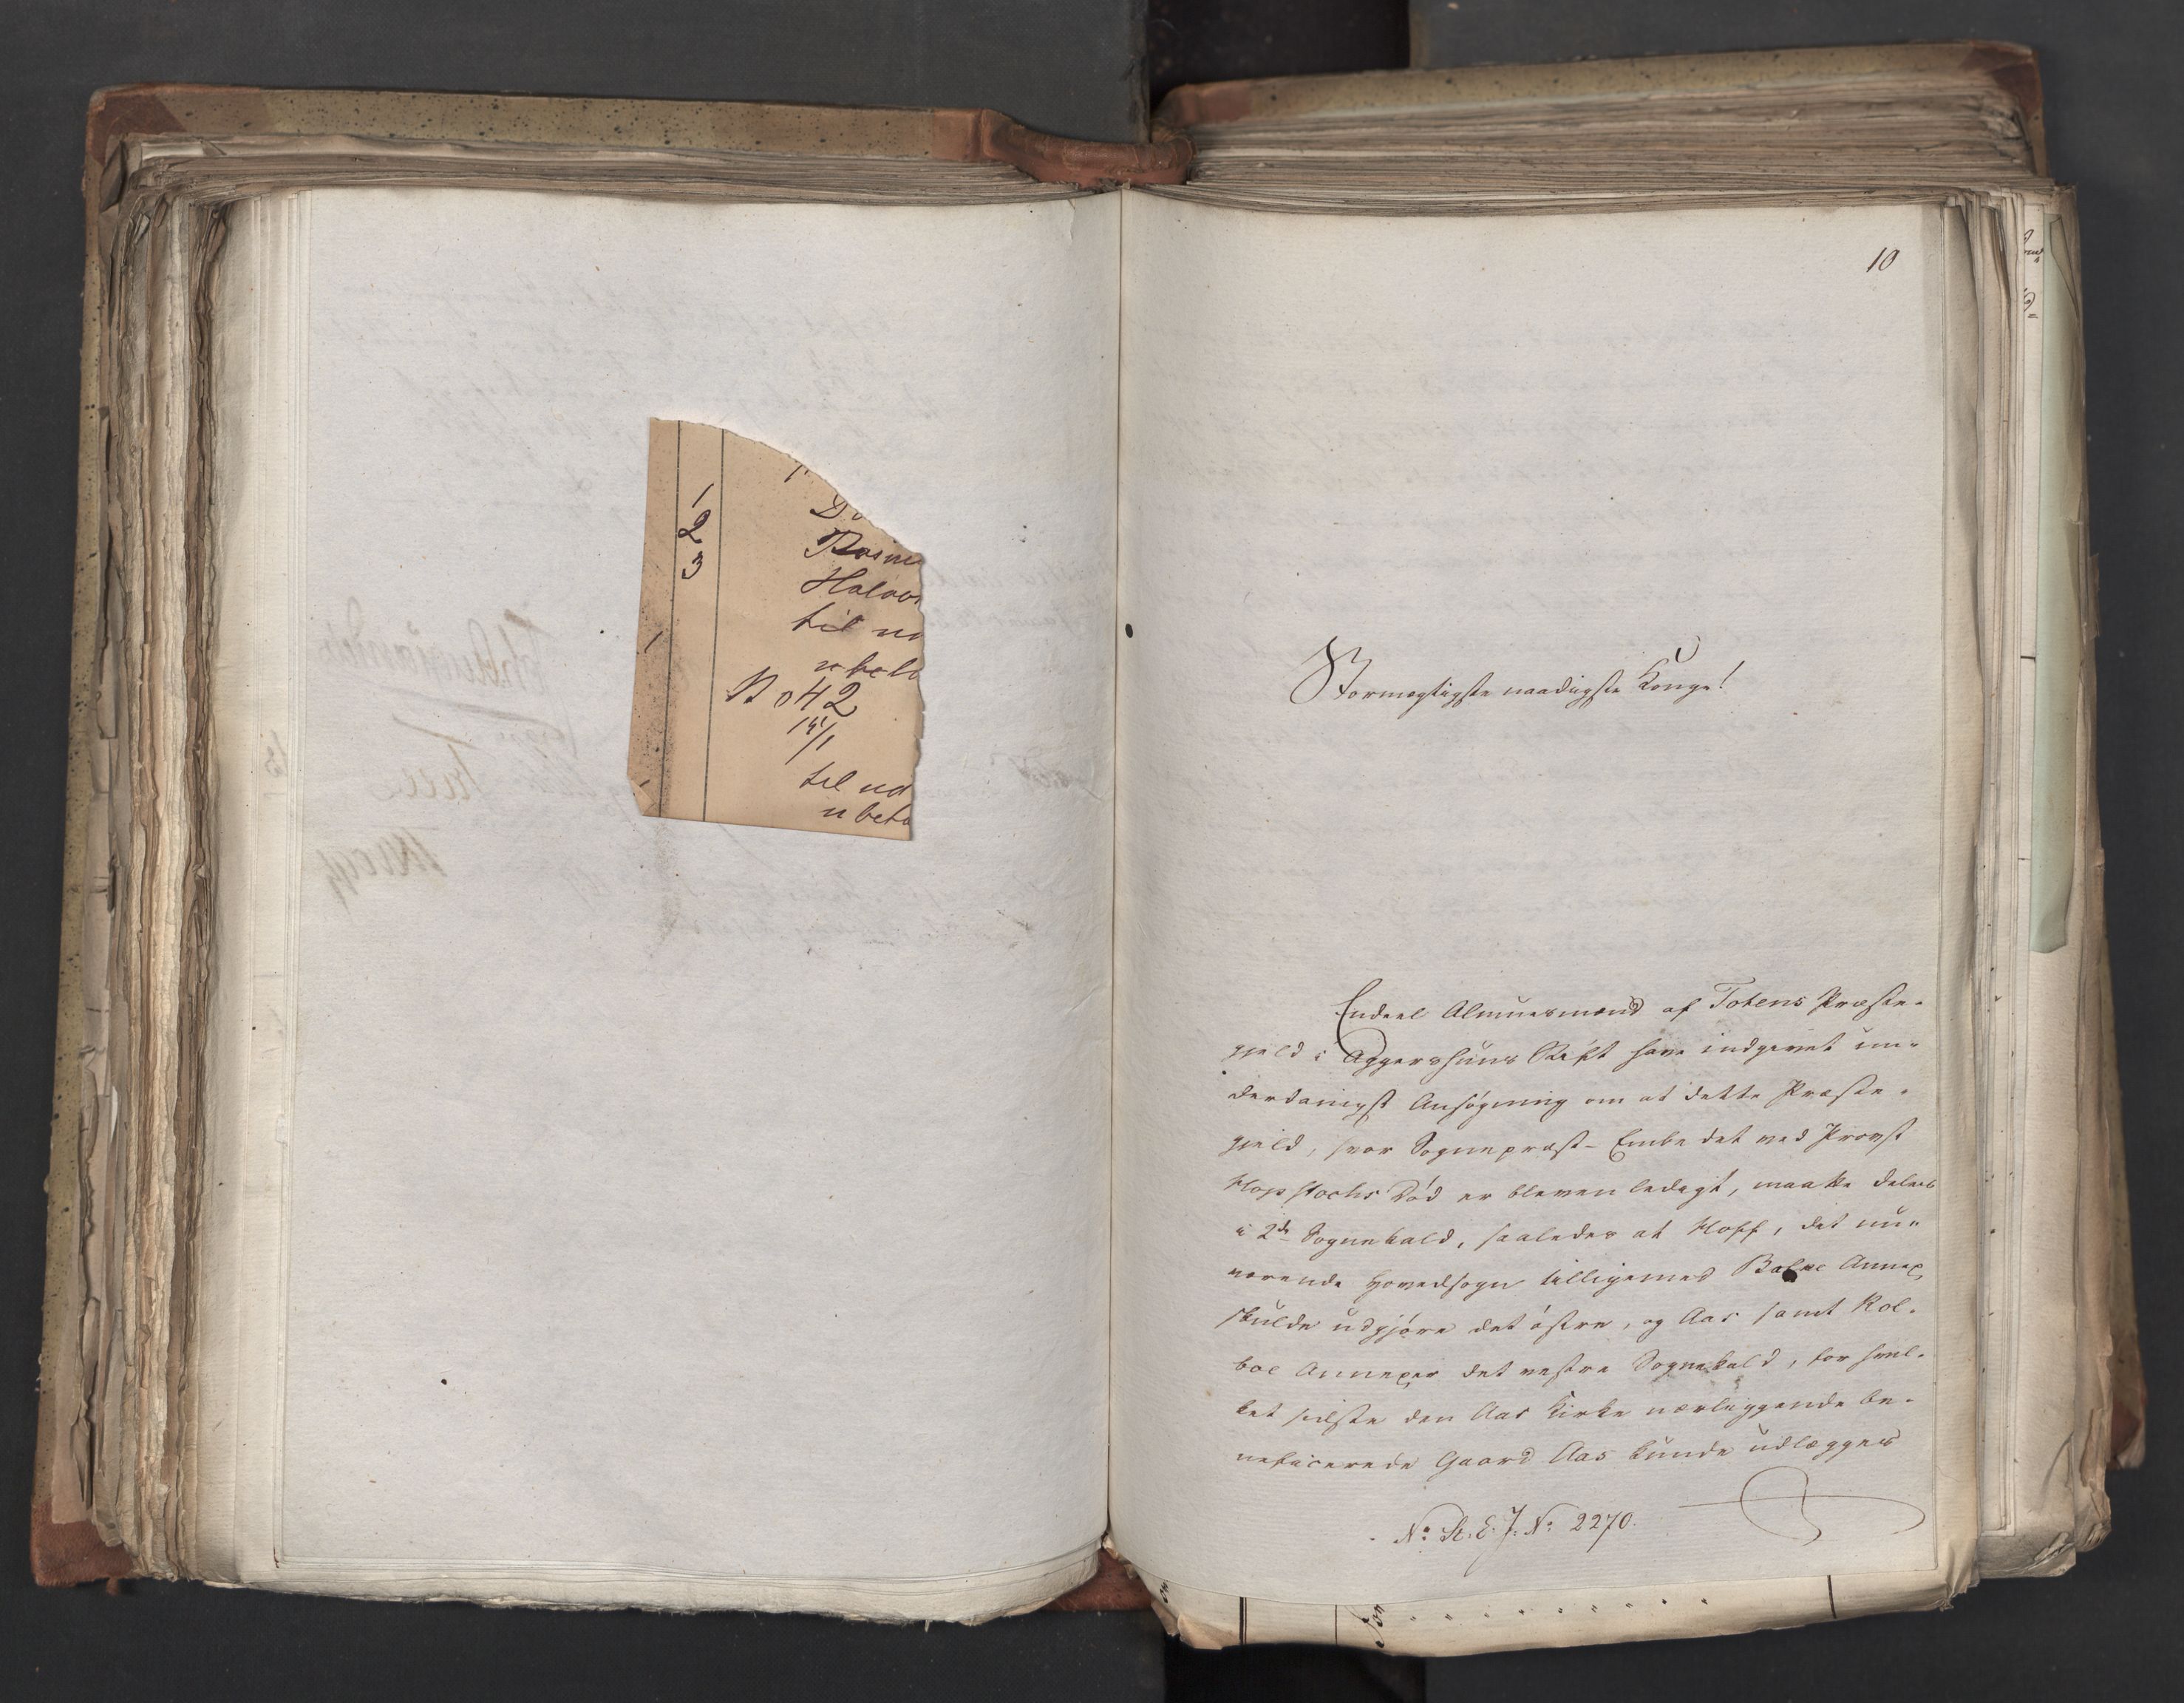 1
2
3
Do
Rasm
Halvor
til ud
ubeta
No 42
14/1
til ud
ubeta
10
Stormægtigste naadigste Konge!
Endeel Almuesmænd af Totens Præste-
gjeld i Aggershuus Stift have indgivet un-
derdanigst Ansøgning om at dette Præste-
gjeld, hvor Sognepræst-Embedet ved Provst
Hopstocks Død er bleven ledigt, maatte deles
i 2de Sognekald, saaledes at Hoff, det nu-
værende Hovedsogn tilligemed Balke Annex
skulde udgjøre det østre, og Aas samt Kol-
boe Annexer det vestre Sognekald, for hvil-
ket sidste den Aas Kirke nærliggende be-
neficerede Gaard Aas kunde udlægges
No: St. E. J. No: 2270.